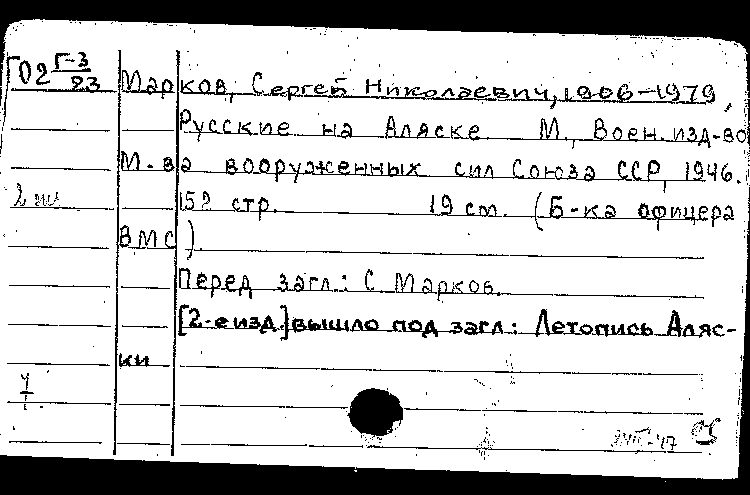 Г02 Г-3/23
Марков, Сергей Николаевич, 1906-1979,
Русские на Аляске М., Воен. изд-во
М-ва вооруженных сил Союза ССР, 1946.
152 стр. 19 см. (Б-ка офицера
ВМС).
Перед загл.: С. Марков.
[2-е изд.] вышло под загл.: Летопись Аляс-
ки